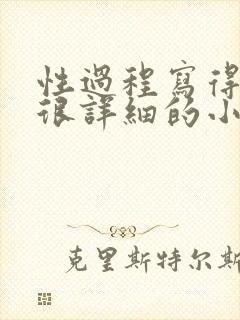 性過程寫得
很詳細的小
克里斯特尔斯